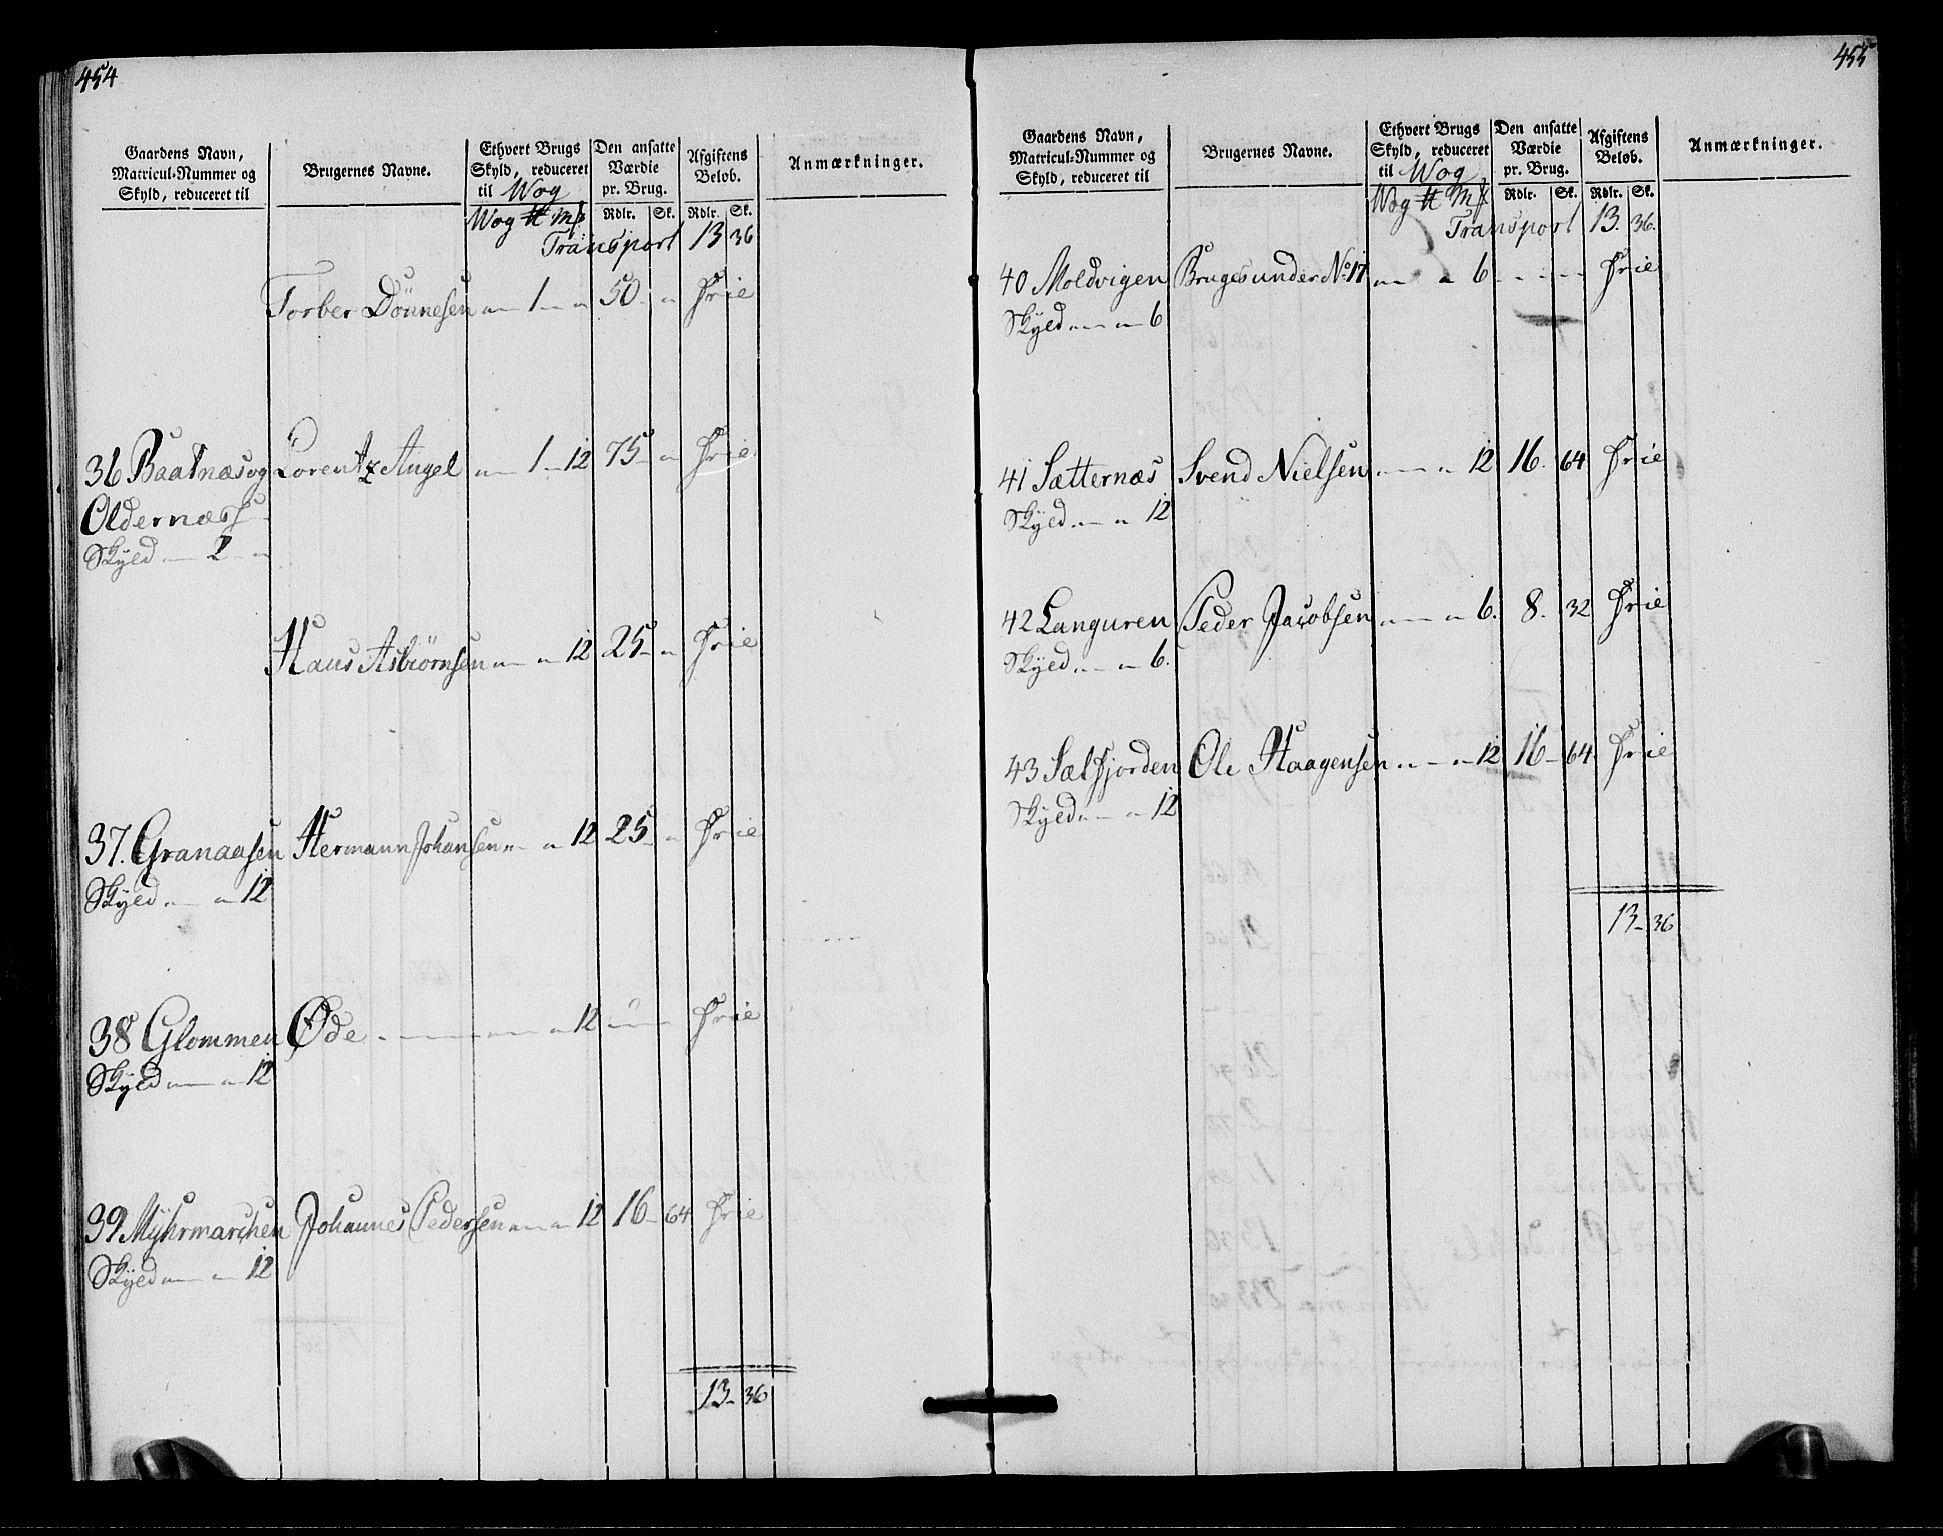 454
Gaardens Navn, Matricul-Nummer og Skyld, reduceret til
Brugernes Navne.
Ethvert Brugs Skyld, reduceret til Wog
Den ansatte Værdie pr. Brug.
Afgiftens Beløb.
Anmærkninger.
Wog ℔ Mk Rdlr. Sk. Rdlr. Sk.
Transport 13 36
Torber Dönnesen „ 1 „ 50 „ Frie
36 Baatnæs og Lorentz Angel „ 1 12 75 „ Frie
Oldernæss
Skyld 2 „
Hans Asbiörnsen „ „ 12 25 „ Frie
37. Granaasen Hermann Johansen „ „ 12 25 „ Frie
Skyld „ „ 12
38 Glommen Øde „ „ 12 „ „ Frie
Skyld „ „ 12
39 Myhrmarchen Johannes Pedersen „ „ 12 16 64 Frie
Skyld „ „ 12
13 36
455
Gaardens Navn, Matricul-Nummer og Skyld, reduceret til
Brugernes Navne.
Ethvert Brugs Skyld, reduceret til Wog
Den ansatte Værdie pr. Brug.
Afgiftens Beløb.
Anmærkninger.
Wog ℔ Mk Rdlr. Sk. Rdlr. Sk.
Transport 13. 36.
40 Moldvigen Bruges under No 17 „ „ 6 - - - - Frie
Skyld „ „ 6
41 Sætternæs Svend Nielsen „ „ 12 16. 64 Frie
Skyld „ „ 12
42 Languren Peder Jacobsen „ „ 6. 8. 32 Frie
Skyld „ „ 6.
43 Sælfjorden Ole Haagensen „ „ 12 16 64 Frie
Skyld „ „ 12
13 36